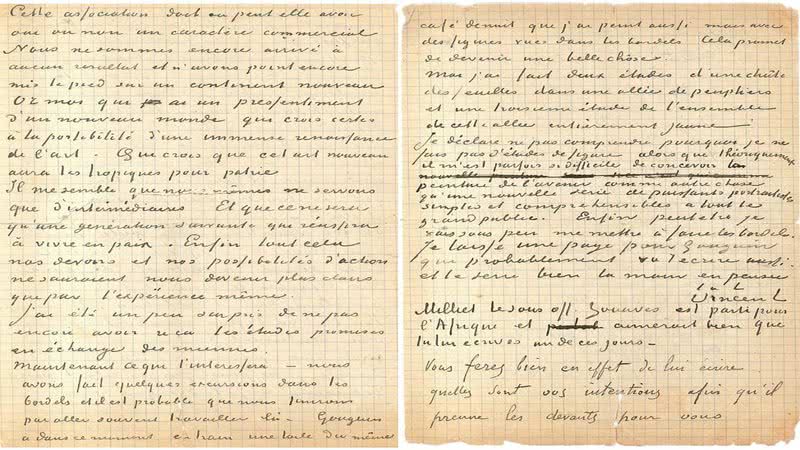 Cette association dont ou peut elle avoir
oui ou non un caractère commercial
Nous ne sommes encore arrivé à
aucun resultat et n'avons point encore
mis le pied sur un continent nouveau
Or moi qui ai un pressentiment
d'un nouveau monde qui crois certes
à la possibilité d'une immense renaissance
de l'art. Qui crois que cet art nouveau
aura les tropiques pour patrie
Il me semble que nous mêmes ne servons
que d'intermédiaires Et que ce ne sera
qu'une génération suivante qui réussira
à vivre en paix. Enfin tout cela
nos devoirs et nos possibilités d'action
ne sauraient nous devenir plus clairs
que par l'expérience même.
J'ai été un peu surpris de ne pas
encore avoir reçu les études promises
en échange des miennes.
Maintenant ce qui t'interessera – nous
avons fait quelques excursions dans les
bordels et il est probable que nous finirons
par aller souvent travailler là – Gauguin
a dans ce moment en train une toile du même
café de nuit que j'ai peint aussi mais avec
des figures vues dans les bordels Cela promet
de devenir une belle chôse.
moi j'ai fait deux études d'une chûte
des feuilles dans une allée de peupliers
et une troisième étude de l'ensemble
de cette allée entièrement jaune
Je déclare ne pas comprendre pourquoi je ne
fais pas d'études de figure alors que théoriquement
il m'est parfois si difficile de concevoir la
peinture de l'avenir comme autre chose
qu'une nouvelle série de puissants portraitistes
simples et compréhensibles à tout le
grand public. Enfin peut etre je
vais sous peu me mettre à faire les bordels.
Je laisse une page pour Gauguin
qui probablement va t'ecrire aussi
et te serre bien la main en pensée
t. à t.
Vincent
Milliet le sous off. Zouaves est parti pour
l'Afrique et aimerait bien que
tu lui ecrives un de ces jours –
Vous ferez bien en effet de lui écrire
quelles sont vos intentions afin qu'il
prenne les devants pour vous